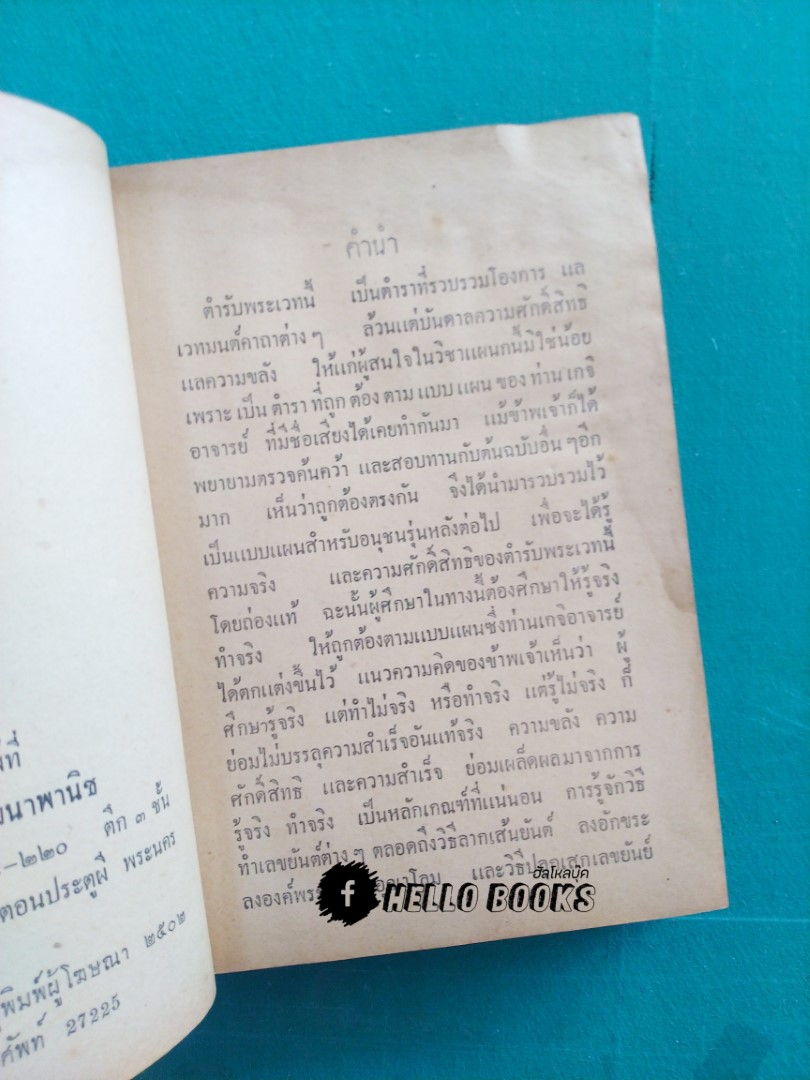 นที่
นาพานิช
-๒๒๐ ตึก ๓ ชั้น
ตอนประตูผี พระนคร
พิมพ์ผู้โฆษณา ๒๕๐๒
ศัพท์ 27225
คำนำ
ตำรับพระเวทนี้ เป็นตำราที่รวบรวมโองการ แล
เวทมนต์คาถาต่าง ๆ ล้วนแต่บันดาลความศักดิ์สิทธิ
แลความขลัง ให้แก่ผู้สนใจในวิชาแผนกนี้มิใช่น้อย
เพราะ เป็น ตำรา ที่ถูก ต้อง ตาม แบบ แผน ของ ท่าน เกจิ
อาจารย์ ที่มีชื่อเสียงได้เคยทำกันมา แม้ข้าพเจ้าก็ได้
พยายามตรวจค้นคว้า และสอบทานกับต้นฉบับอื่น ๆ อีก
มาก เห็นว่าถูกต้องตรงกัน จึงได้นำมารวบรวมไว้
เป็นแบบแผนสำหรับอนุชนรุ่นหลังต่อไป เพื่อจะได้รู้
ความจริง และความศักดิ์สิทธิของตำรับพระเวทนี้
โดยถ่องแท้ ฉะนั้นผู้ศึกษาในทางนี้ต้องศึกษาให้รู้จริง
ทำจริง ให้ถูกต้องตามแบบแผนซึ่งท่านเกจิอาจารย์
ได้ตกแต่งขึ้นไว้ แนวความคิดของข้าพเจ้าเห็นว่า ผู้
ศึกษารู้จริง แต่ทำไม่จริง หรือทำจริง แต่รู้ไม่จริง ก็
ย่อมไม่บรรลุความสำเร็จอันแท้จริง ความขลัง ความ
ศักดิ์สิทธิ และความสำเร็จ ย่อมเผล็ดผลมาจากการ
รู้จริง ทำจริง เป็นหลักเกณฑ์ที่แน่นอน การรู้จักวิธี
ทำเลขยันต์ต่าง ๆ ตลอดถึงวิธีลากเส้นยันต์ ลงอักขระ
ลงองค์พระ และวิธีปลุกเสกเลขยันย์
ฮัลโหลบุ๊ค
f HELLO BOOKS